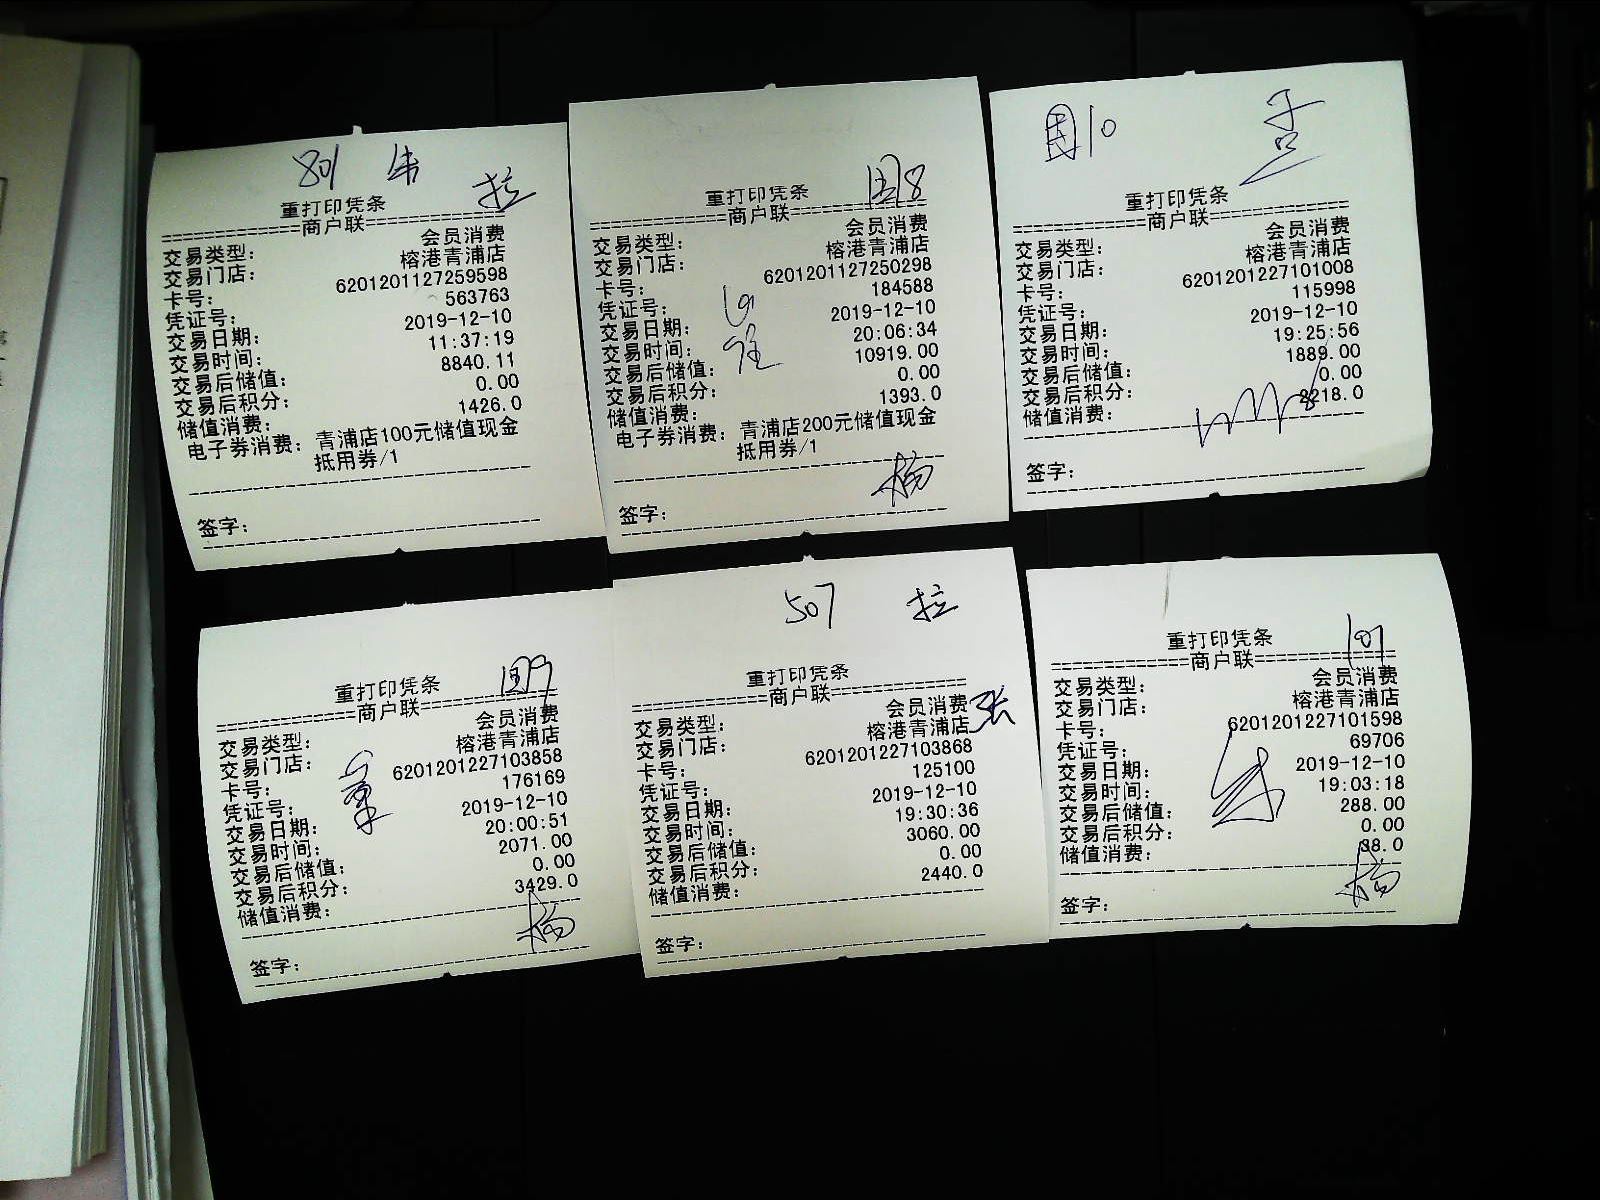 801
拉
重打印凭条
商户联
交易类型： 会员消费
交易门店： 榕港青浦店
卡号： 6201201127259598
凭证号： 563763
交易日期： 2019-12-10
交易时间： 11:37:19
交易后储值： 8840.11
交易后积分： 0.00
储值消费： 1426.0
电子券消费： 青浦店100元储值现金
抵用券/1
签字：
重打印凭条
商户联
交易类型： 会员消费
交易门店： 榕港青浦店
卡号： 6201201127250298
凭证号： 184588
交易日期： 2019-12-10
交易时间： 20:06:34
交易后储值： 10919.00
交易后积分： 0.00
储值消费： 1393.0
电子券消费： 青浦店200元储值现金
抵用券/1
杨
签字：
重打印凭条
商户联
交易类型： 会员消费
交易门店： 榕港青浦店
卡号： 6201201227101008
凭证号： 115998
交易日期： 2019-12-10
交易时间： 19:25:56
交易后储值： 1889.00
交易后积分： 0.00
储值消费：
签字：
重打印凭条
商户联
交易类型： 会员消费
交易门店： 榕港青浦店
卡号： 6201201227103858
凭证号： 176169
交易日期： 2019-12-10
交易时间： 20:00:51
交易后储值： 2071.00
交易后积分： 0.00
储值消费： 3429.0
杨
签字：
507 拉
重打印凭条
商户联
交易类型： 会员消费 张
交易门店： 榕港青浦店
卡号： 6201201227103868
凭证号： 125100
交易日期： 2019-12-10
交易时间： 19:30:36
交易后储值： 3060.00
交易后积分： 0.00
储值消费： 2440.0
签字：
107
重打印凭条
商户联
交易类型： 会员消费
交易门店： 榕港青浦店
卡号： 6201201227101598
凭证号： 69706
交易日期： 2019-12-10
交易时间： 19:03:18
交易后储值： 288.00
交易后积分： 0.00
储值消费：
杨
签字：